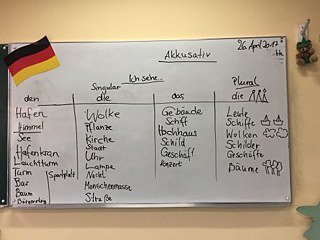 Akkusativ
26. April 2017
Ich sehe...
Singular
Plural
den
die
das
die
Hafen
Himmel
See
Hafenkran
Leuchtturm
Turm
Bar
Baum
Sportplatz
Wolke
Pflanze
Kirche
Stadt
Uhr
Lampe
Nadel
Menschenmasse
Straße
Gebäude
Schiff
Hochhaus
Schild
Geschäft
Konzert
Leute
Schiffe
Wolken
Schilder
Geschäfte
Bäume